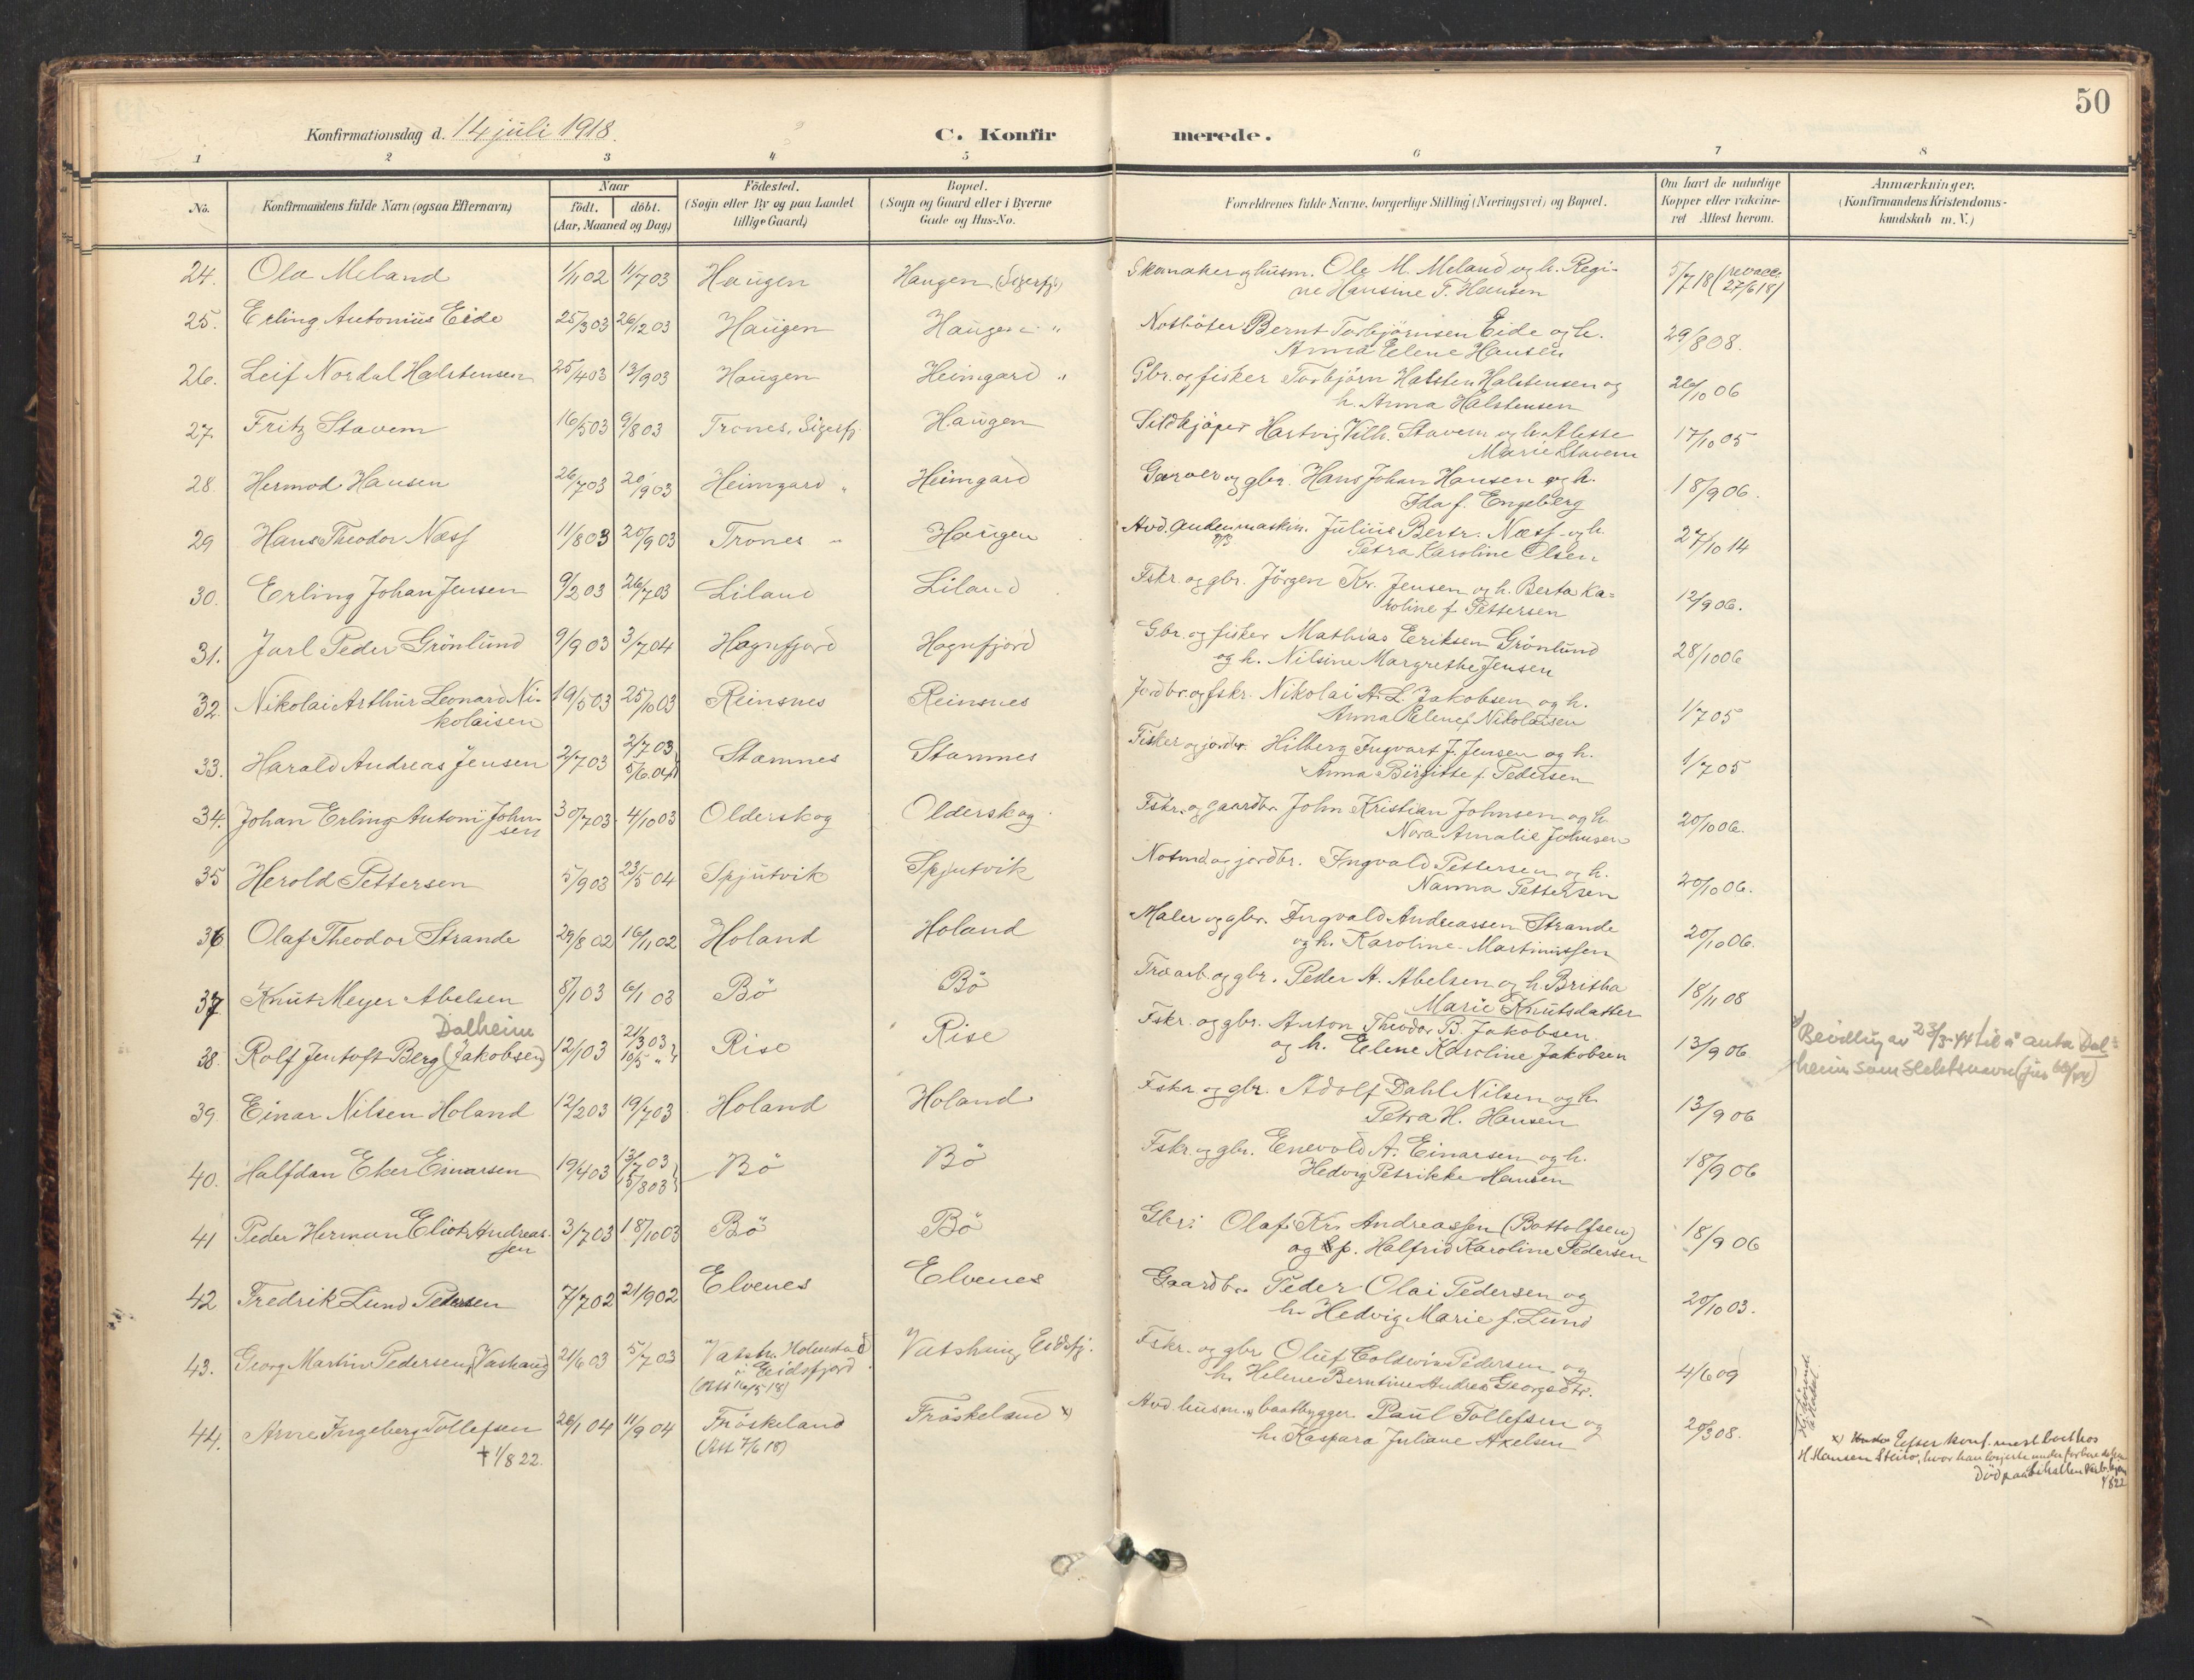 50
Konfirmationsdag d. 14 juli 1918.
C. Konfirmerede.
1 2 3 4 5 6 7 8
No.
Konfirmandens fulde Navn (ogsaa Efternavn)
Naar
födt. döbt.
(Aar, Maaned og Dag)
Födested.
(Sogn eller By og paa Landet
tillige Gaard)
Bopæl.
(Sogn og Gaard eller i Byerne
Gade og Hus-No.
Forældrenes fulde Navne, borgerlige Stilling (Næringsvei) og Bopæl.
Om havt de naturlige
Kopper eller vakcine-
ret Attest herom.
Anmærkninger.
(Konfirmandens Kristendoms-
kundskab m. V.)
24. Ola Meland 1/11 02 11/7 03 Haugen Haugen (Sigerfj.) Skomaker og husm. Ole M. Meland og h. Regi-
ne Hansine T. Hansen 5/7 18 (revacc. 27/6 18)
25. Erling Antonius Eide 25/3 03 26/12 03 Haugen Haugen " Notbøter Bernt Torbjørnsen Eide og h.
Anna Elene Hansen 29/8 08.
26. Leif Nordal Halstensen 25/4 03 13/9 03 Haugen Heimgard " Gbr. og fisker Torbjörn Halsten Halstensen og
h. Anna Halstensen 26/10 06
27. Fritz Stavem 16/5 03 9/8 03 Trones, Sigerfj. Haugen Sildkjøper Hartvig Vilh. Stavem og h. Alette
Marie Stavem 17/10 05
28. Hermod Hansen 26/7 03 20/9 03 Heimgard " Heimgard Garver og gbr. Hans Johan Hansen og h.
Ida f. Engeberg 18/9 06.
29 Hans Theodor Næss 11/8 03 20/9 03 Trones " Haugen Avd. andenmaskin. Julius Bertr. Næss og h.
Petra Karoline Olsen 27/10 14
30. Erling Johan Jensen 9/2 03 26/7 03 Liland Liland Fskr. og gbr. Jörgen Kr. Jensen og h. Berta Ka-
roline f. Pettersen 12/9 06.
31. Jarl Peder Grönlund 9/9 03 3/7 04 Hognfjord Hognfjord Gbr. og fisker Mathias Eriksen Grönlund
og h. Nilsine Margrethe Jensen 28/10 06
32. Nikolai Arthur Leonard Ni-
kolaisen 19/5 03 25/10 03 Reinsnes Reinsnes Jordbr. og fskr. Nikolai A. L. Jakobsen og h.
Anna Elene f. Nikolaisen 1/7 05
33. Harald Andreas Jensen 2/7 03 2/7 03
5/6 04 } Stamnes Stamnes Fisker og jordbr. Hilberg Ingvart J. Jensen og h.
Anna Birgitte f. Pedersen 1/7 05
34. Johan Erling Antoni John-
sen 30/7 03. 4/10 03 Olderskog Olderskog Fskr. og gaardbr. John Kristian Johnsen og h.
Nora Amalie Johnsen 20/10 06.
35 Herold Pettersen 5/9 03 23/5 04 Spjutvik Spjutvik Notmd. og jordbr. Ingvald Pettersen og h.
Nanna Pettersen 20/10 06.
36 Olaf Theodor Strande 29/8 02 16/11 02 Holand Holand Maler og gbr. Ingvald Andreassen Strande
og h. Karoline Martinussen 20/10 06.
37 Knut Meyer Abelsen 8/1 03 6/1 03 Bö Bö Træarb. og gbr. Peder A. Abelsen og h. Britha
Marie Knutsdatter 18/11 08
Dalheim
38. Rolf Jentoft Berg (Jakobsen) 12/1 03 21/3 03
10/5 " } Rise Rise Fskr. og gbr. Anton Theodor B. Jakobsen
og h. Elene Karoline Jakobsen 13/9 06
Bevilling av 23/3-44 til å anta Dal-
heim som slektsnavn (jnr 66/44)
39. Einar Nilsen Holand 12/2 03 19/7 03 Holand Holand Fskr. og gbr. Adolf Dahl Nilsen og h.
Petra H. Hansen 13/9 06
40. Halfdan Eker Einarsen 19/4 03 13/7 03
15/8 03 } Bö Bö Fskr. og gbr. Enevold A. Einarsen og h.
Hedvig Petrikke Hansen 18/9 06
41 Peder Herman Eliot Andreas-
sen 3/7 03 18/10 03 Bö Bö Gbr. Olaf Kr. Andreassen (Bottolfsen)
og p. Halfrid Karoline Pedersen 18/9 06
42 Fredrik Lund Pedersen 7/7 02 21/9 02 Elvenes Elvenes Gaardbr. Peder Olai Pedersen og
h. Hedvig Marie f. Lund 20/10 03.
43. Georg Martin Pedersen (Vashaug) 21/6 03 5/7 03 Vatsh. Holmstad
i Eidsfjord
(Att 16/5 18) Vatshaug Eidsfj. Fskr. og gbr. Oluf Coldevin Pedersen og
h. Helene Berntine Andrea Georgsdtr. 4/6 09
44. Arne Ingeberg Tollefsen
† 1/8 22. 26/1 04 11/9 04 Fröskeland
(Att 7/6 18) Fröskeland x) Avd. husm. & baatbygger Paul Tollefsen og
h. Kaspara Juliane Akelsen 20/3 08.
x) Efter konf. mest bort hos
H. Hansen Steiro, hvor han losjerte under forberedelsen
Död paa
1/8 22